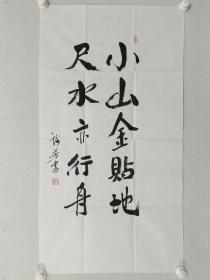 小山金貼地
尺水亦行舟